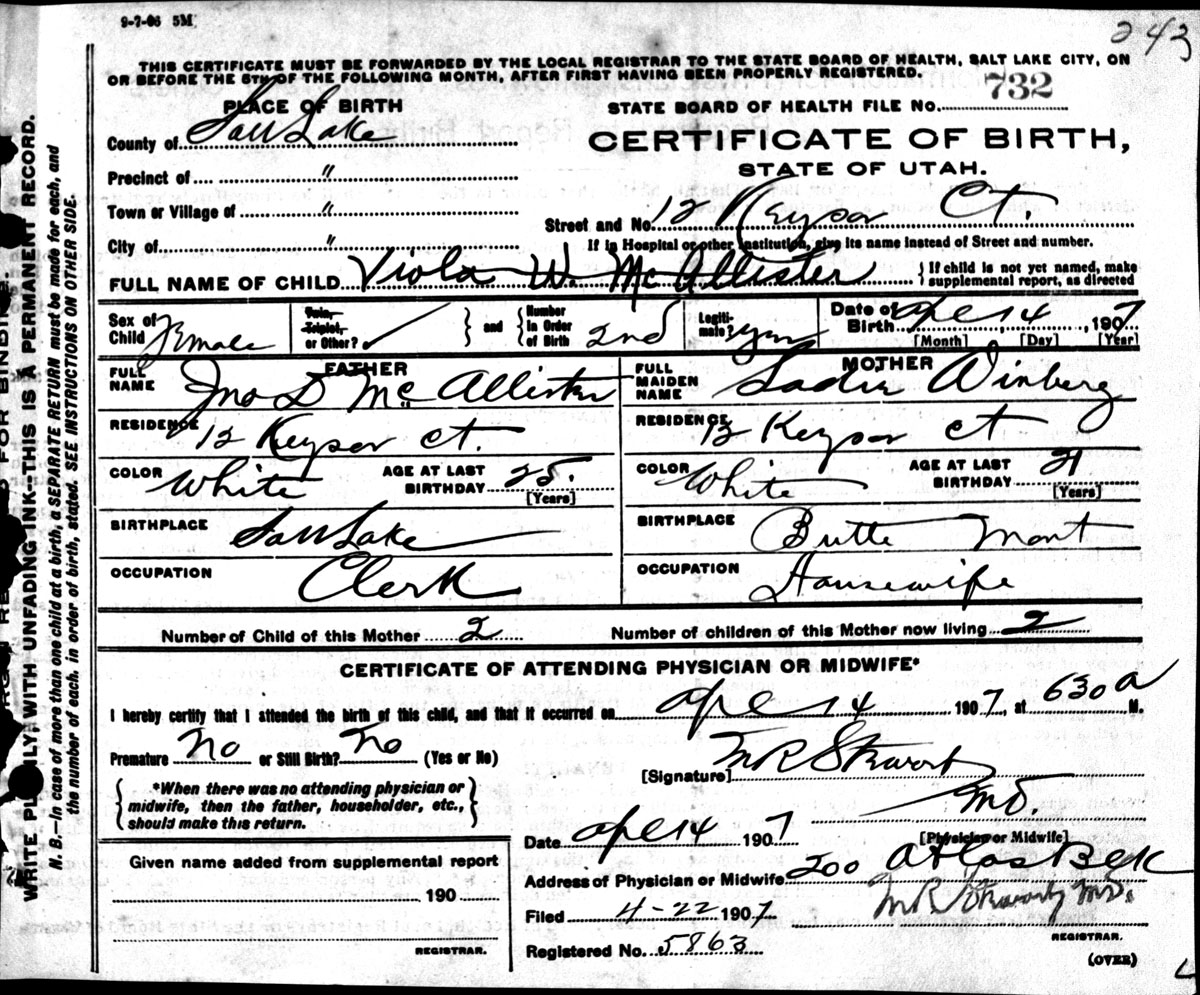 9-7-06 5M
243
THIS CERTIFICATE MUST BE FORWARDED BY THE LOCAL REGISTRAR TO THE STATE BOARD OF HEALTH, SALT LAKE CITY, ON
OR BEFORE THE 5TH OF THE FOLLOWING MONTH, AFTER FIRST HAVING BEEN PROPERLY REGISTERED.
PLACE OF BIRTH
STATE BOARD OF HEALTH FILE NO. 732
County of Salt Lake
CERTIFICATE OF BIRTH,
STATE OF UTAH.
Precinct of "
Town or Village of "
Street and No. 12 Keysor Ct.
City of "
If in Hospital or other Institution, give its name instead of Street and number.
FULL NAME OF CHILD Viola W. McAllister
} If child is not yet named, make
supplemental report, as directed
Sex of Child Female
Twin, Triplet, or Other? ✓
and
Number in Order of Birth 2nd
Legitimate? Yes
Date of Birth Apl 14, 1907
[Month] [Day] [Year]
FATHER
FULL NAME Jno D McAllister
RESIDENCE 12 Keysor Ct.
COLOR White
AGE AT LAST BIRTHDAY 25. [Years]
BIRTHPLACE Salt Lake
OCCUPATION Clerk
MOTHER
FULL MAIDEN NAME Sadie Winberg
RESIDENCE 12 Keysor Ct
COLOR White
AGE AT LAST BIRTHDAY 21 [Years]
BIRTHPLACE Butte Mont
OCCUPATION Housewife
Number of Child of this Mother 2
Number of children of this Mother now living 2
CERTIFICATE OF ATTENDING PHYSICIAN OR MIDWIFE*
I hereby certify that I attended the birth of this child, and that it occurred on Apl 14 1907, at 630 A M.
Premature No or Still Birth? No (Yes or No)
[Signature] M R Stewart
MD.
[Physician or Midwife]
*When there was no attending physician or
midwife, then the father, householder, etc.,
should make this return.
Date Apl 14 1907
Address of Physician or Midwife 200 Atlas Blk
Given name added from supplemental report
190
REGISTRAR.
Filed 4-22 1907
M R Stewart MD.
REGISTRAR.
Registered No. 5863
(OVER)
WRITE PLAINLY, WITH UNFADING INK--THIS IS A PERMANENT RECORD.
N. B.--In case of more than one child at a birth, a SEPARATE RETURN must be made for each, and
the number of each, in order of birth, stated. SEE INSTRUCTIONS ON OTHER SIDE.